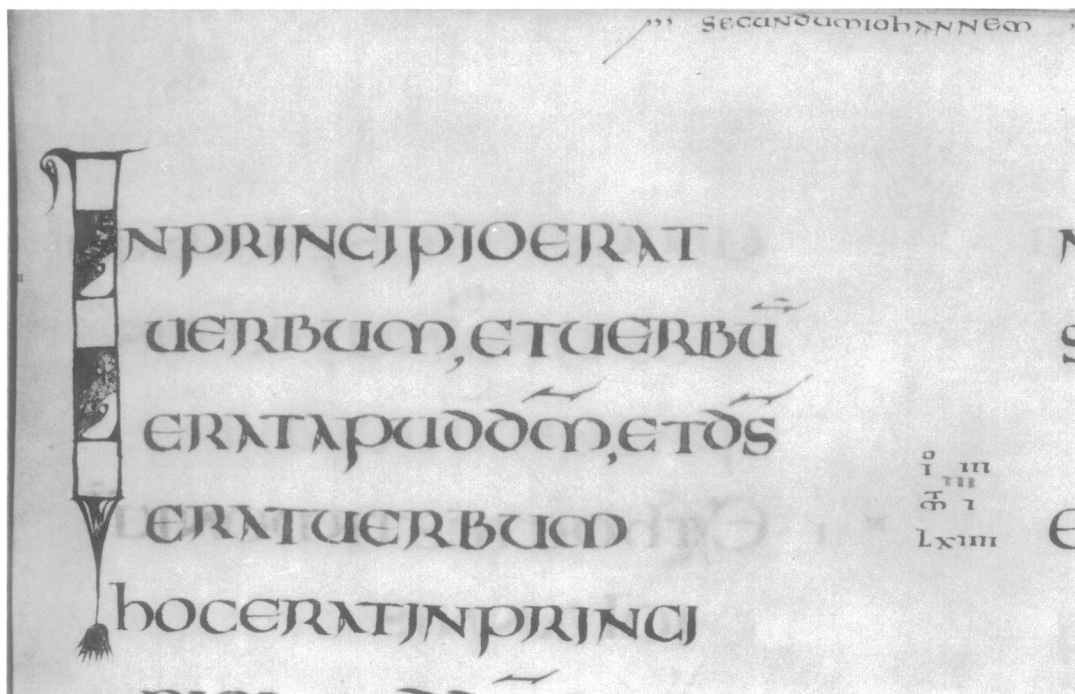 SECUNDUMIOHANNEM
INPRINCIPIOERAT
UERBUM, ETUERBŪ
ERATAPUDDM̄, ETDS̄
ERATUERBUM
hOCERATINPRINCI